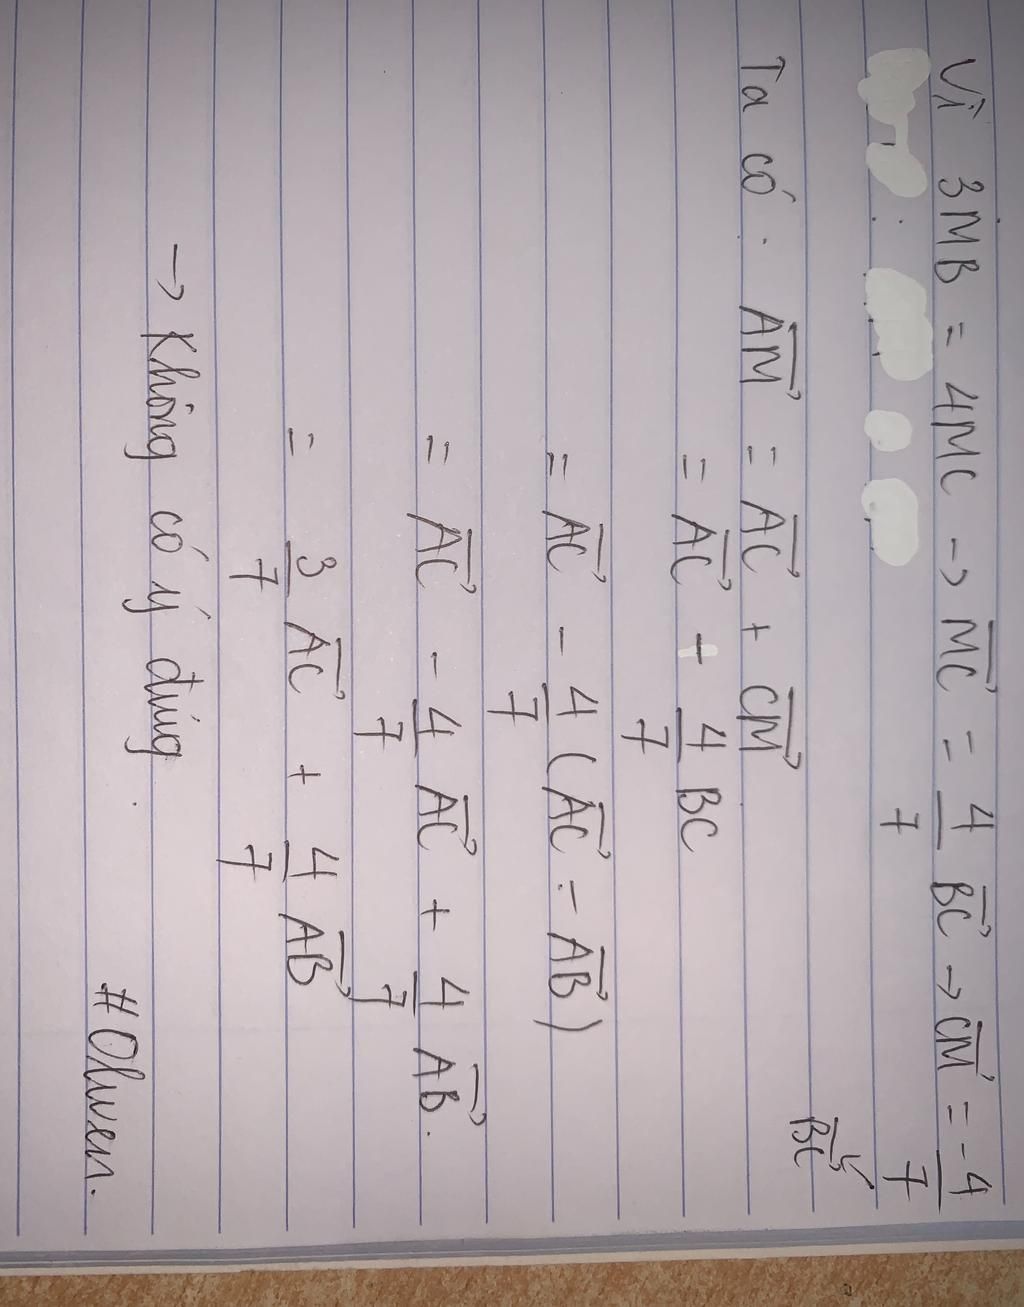 Vì 3MB = 4MC → \overrightarrow{MC} = \frac{4}{7} \overrightarrow{BC} → \overrightarrow{CM} = \frac{-4}{7} \overrightarrow{BC}
Ta có. \overrightarrow{AM} = \overrightarrow{AC} + \overrightarrow{CM}
= \overrightarrow{AC} + \frac{4}{7} BC
= \overrightarrow{AC} - \frac{4}{7} (\overrightarrow{AC} - \overrightarrow{AB})
= \overrightarrow{AC} - \frac{4}{7} \overrightarrow{AC} + \frac{4}{7} \overrightarrow{AB}.
= \frac{3}{7} \overrightarrow{AC} + \frac{4}{7} \overrightarrow{AB}
→ Không có ý đúng.